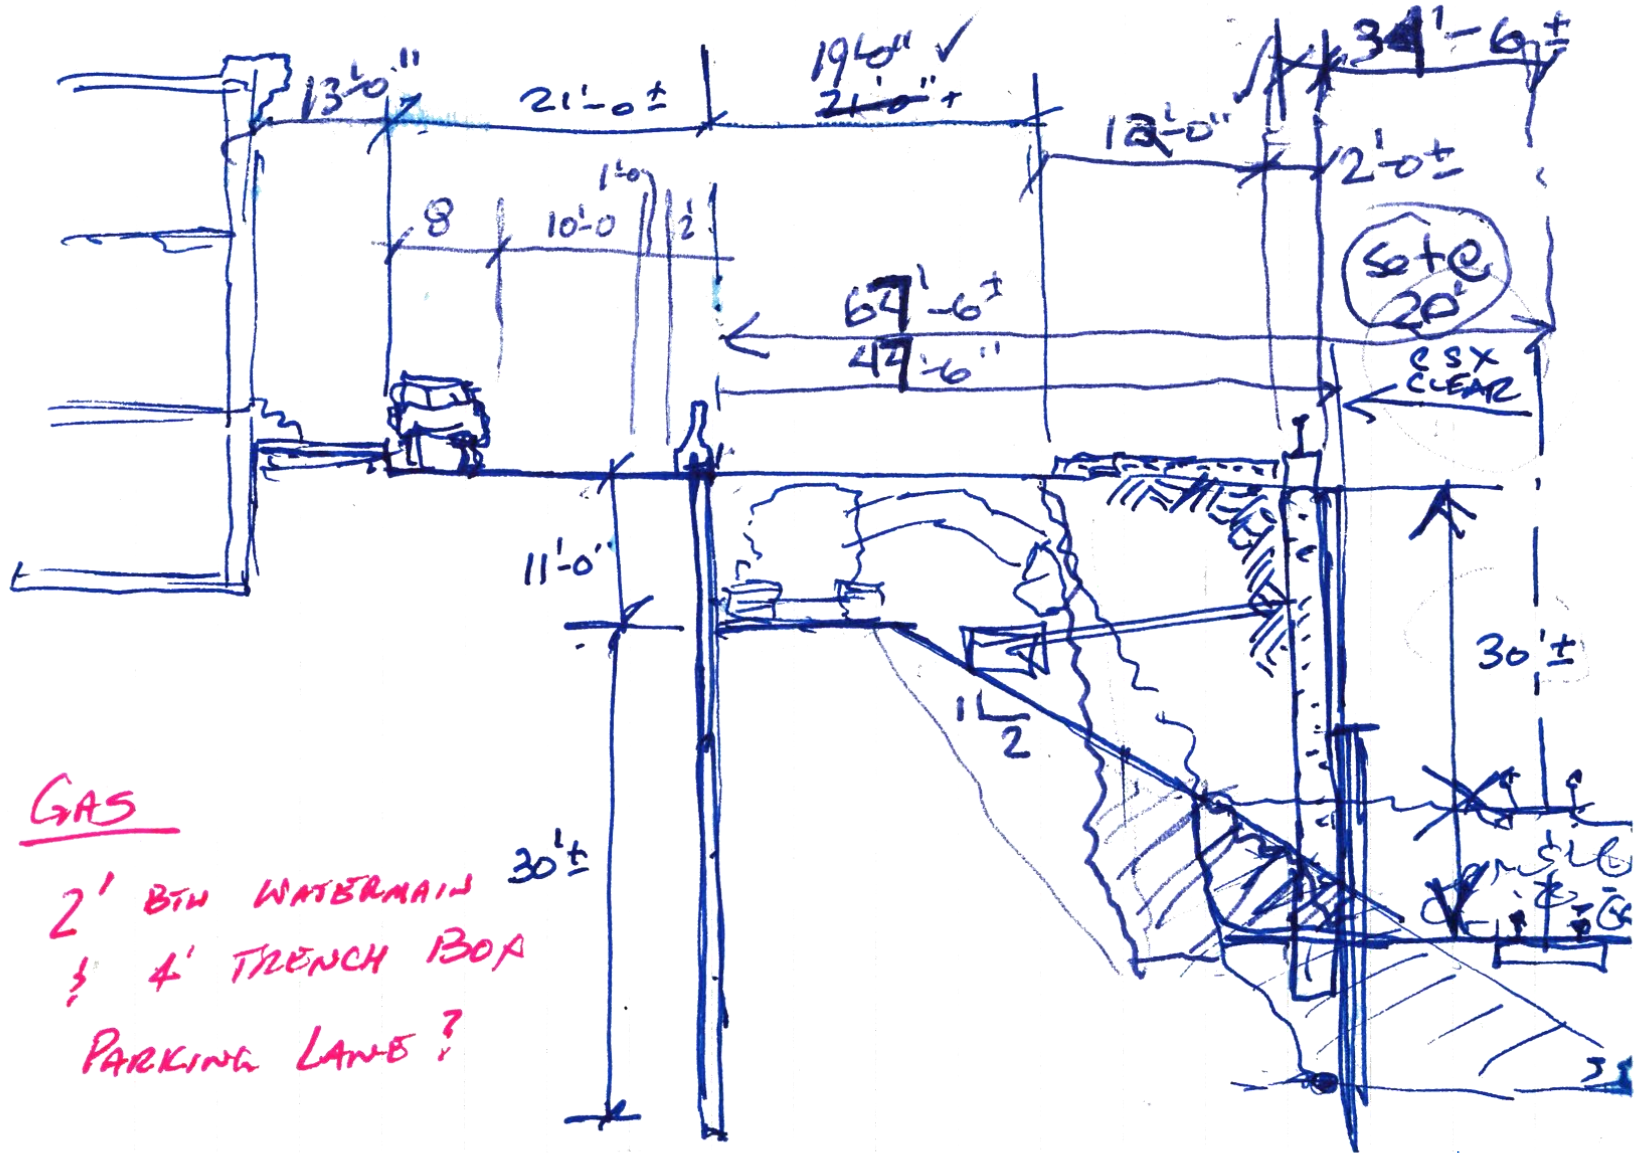 13'-0"
21'-0 ±
19'-0" ✓
21'-0" +
34'-6 ±
12'-0"
2'-0 ±
8
10'-0
1'-0
2'
Set @
20'
64'-6 ±
44'-6"
CSX
CLEAR
11'-0"
30' ±
1
2
30' ±
GAS
2' BTW WATERMAIN
& 4' TRENCH BOX
PARKING LANE?